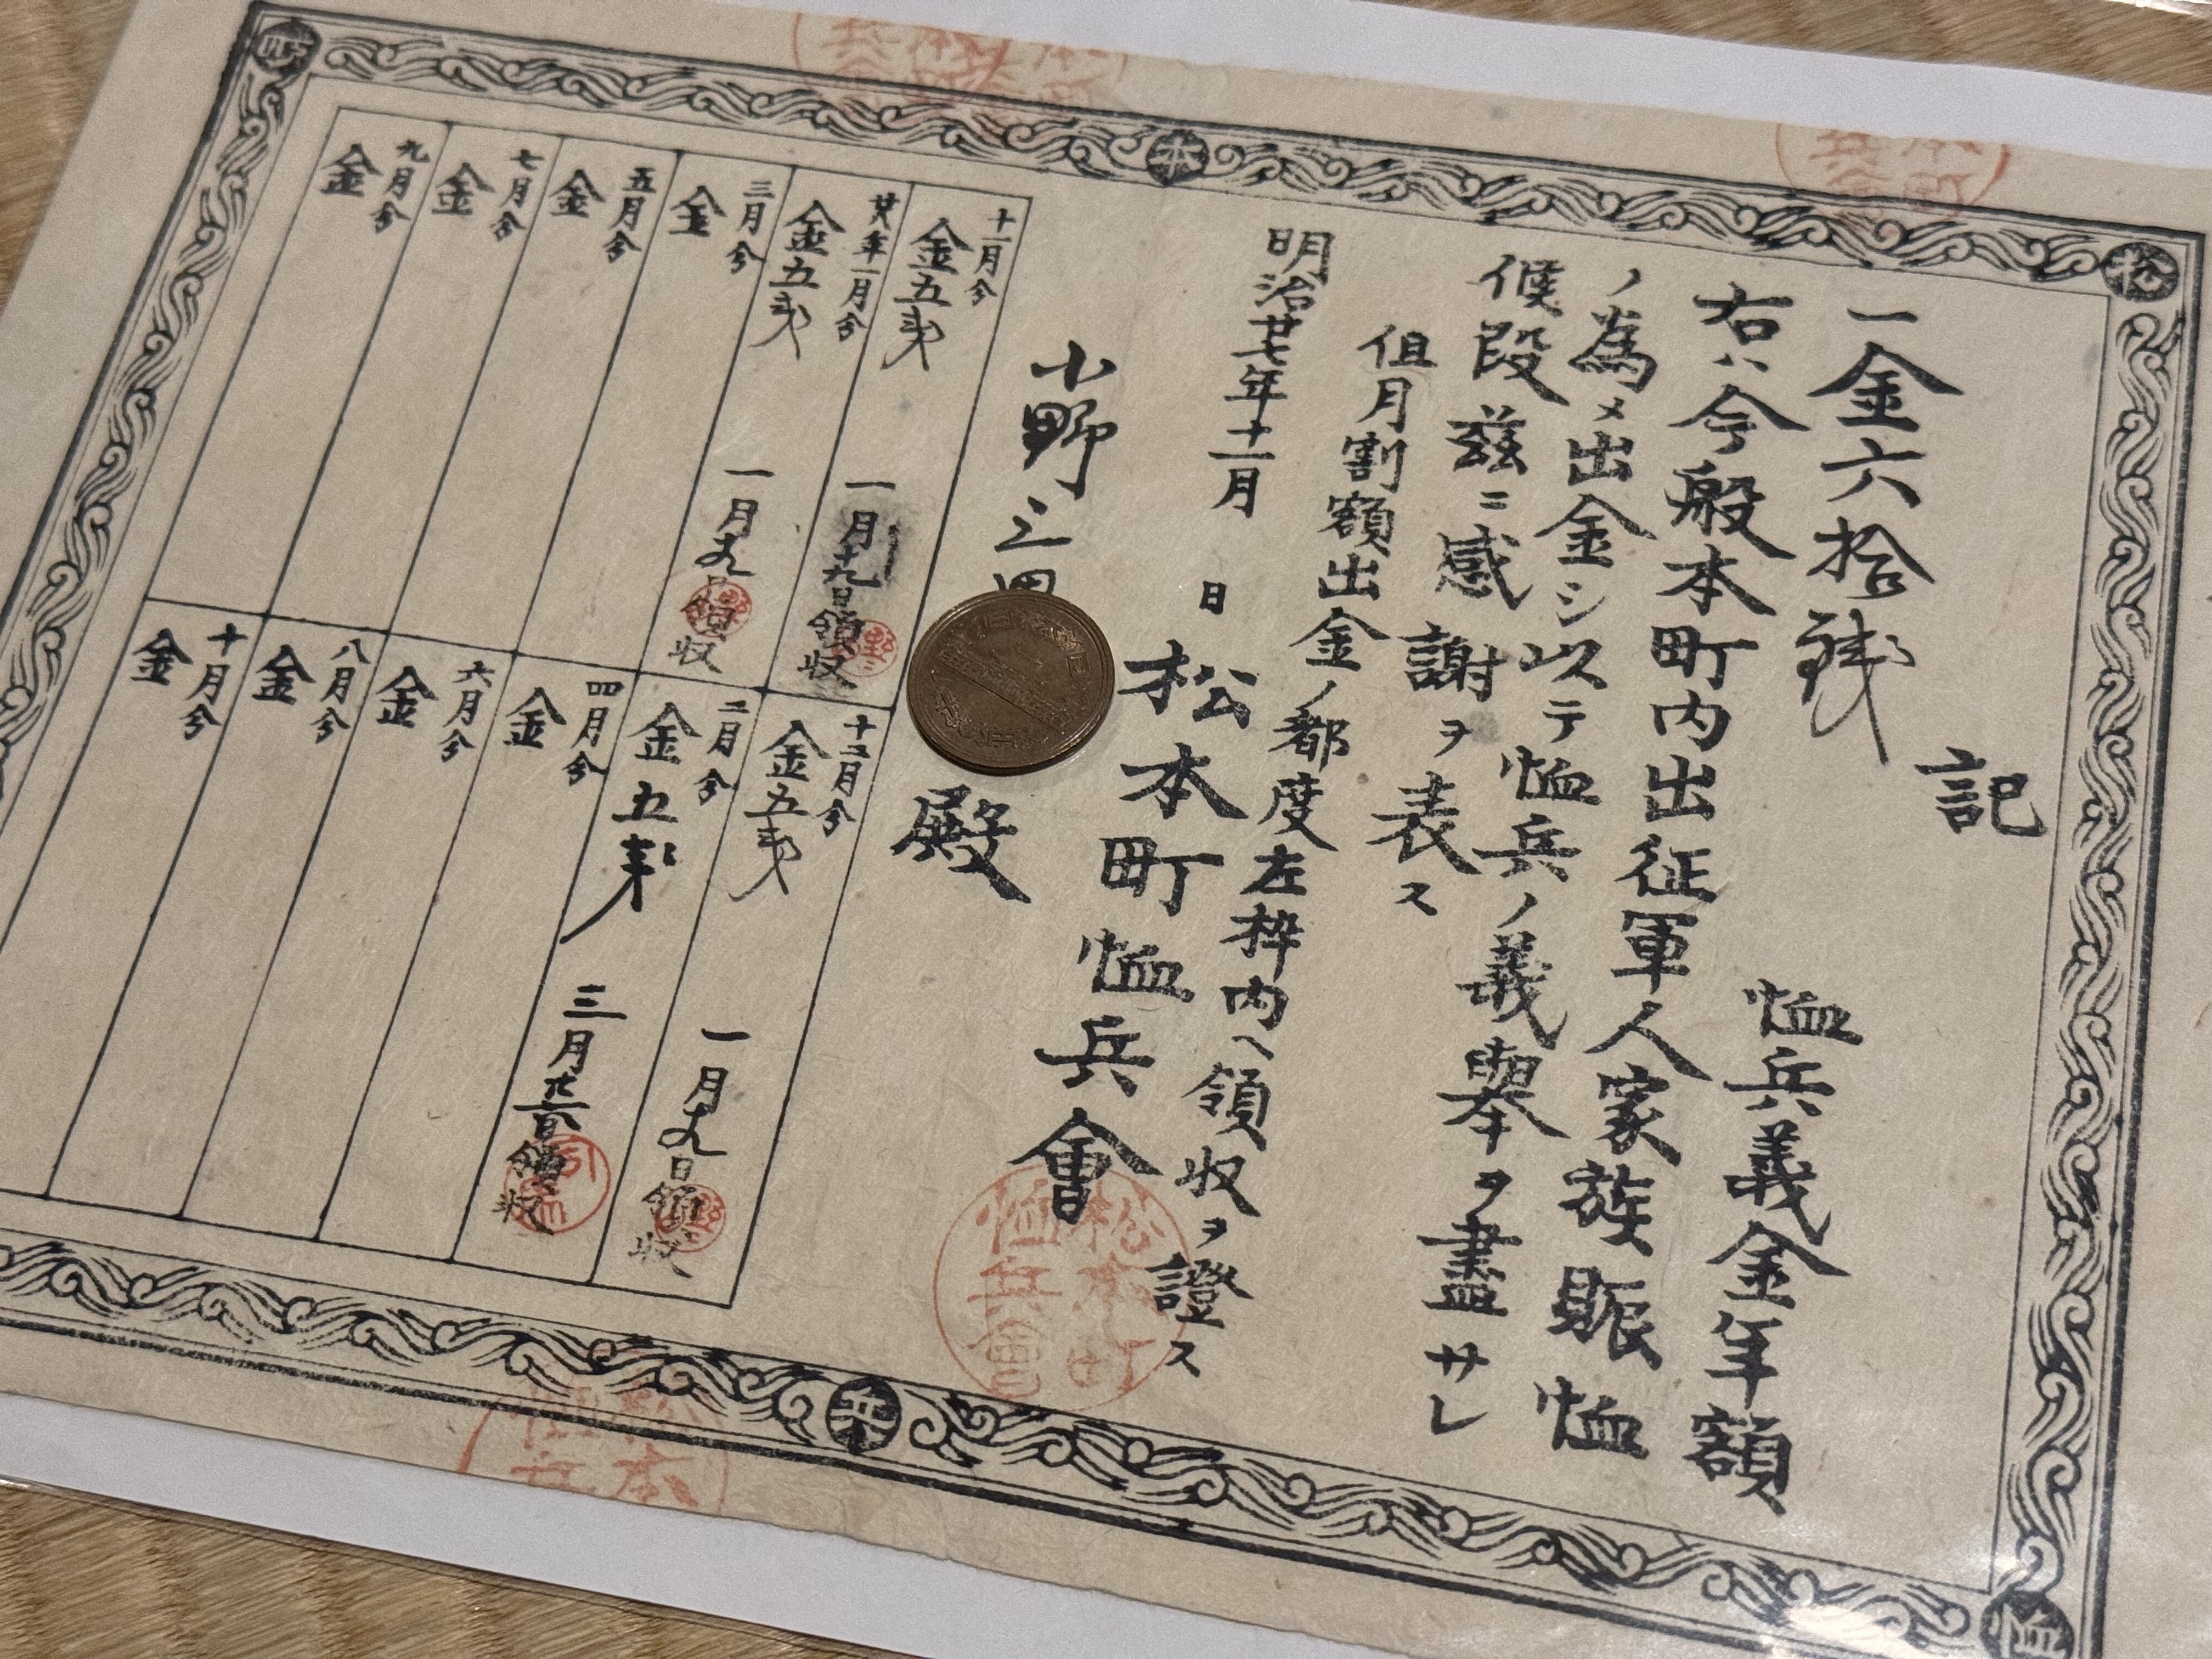 記
一金六拾銭
恤兵義金年額
右ハ今般本町内出征軍人家族賑恤
ノ為メ出金シ以テ恤兵ノ義擧ヲ盡サレ
候段茲ニ感謝ヲ表ス
但月割額出金ノ都度左枠内ヘ領収ヲ證ス
明治廿七年十一月
日
松本町恤兵會
小野三四
殿
十一月分
金五銭
一月十九日領収
十二月分
金五銭
一月十九日領収
廿八年一月分
金五銭
一月十九日領収
二月分
金五銭
三月廿二日領収
三月分
金
四月分
金
五月分
金
六月分
金
七月分
金
八月分
金
九月分
金
十月分
金
松本町
恤兵會